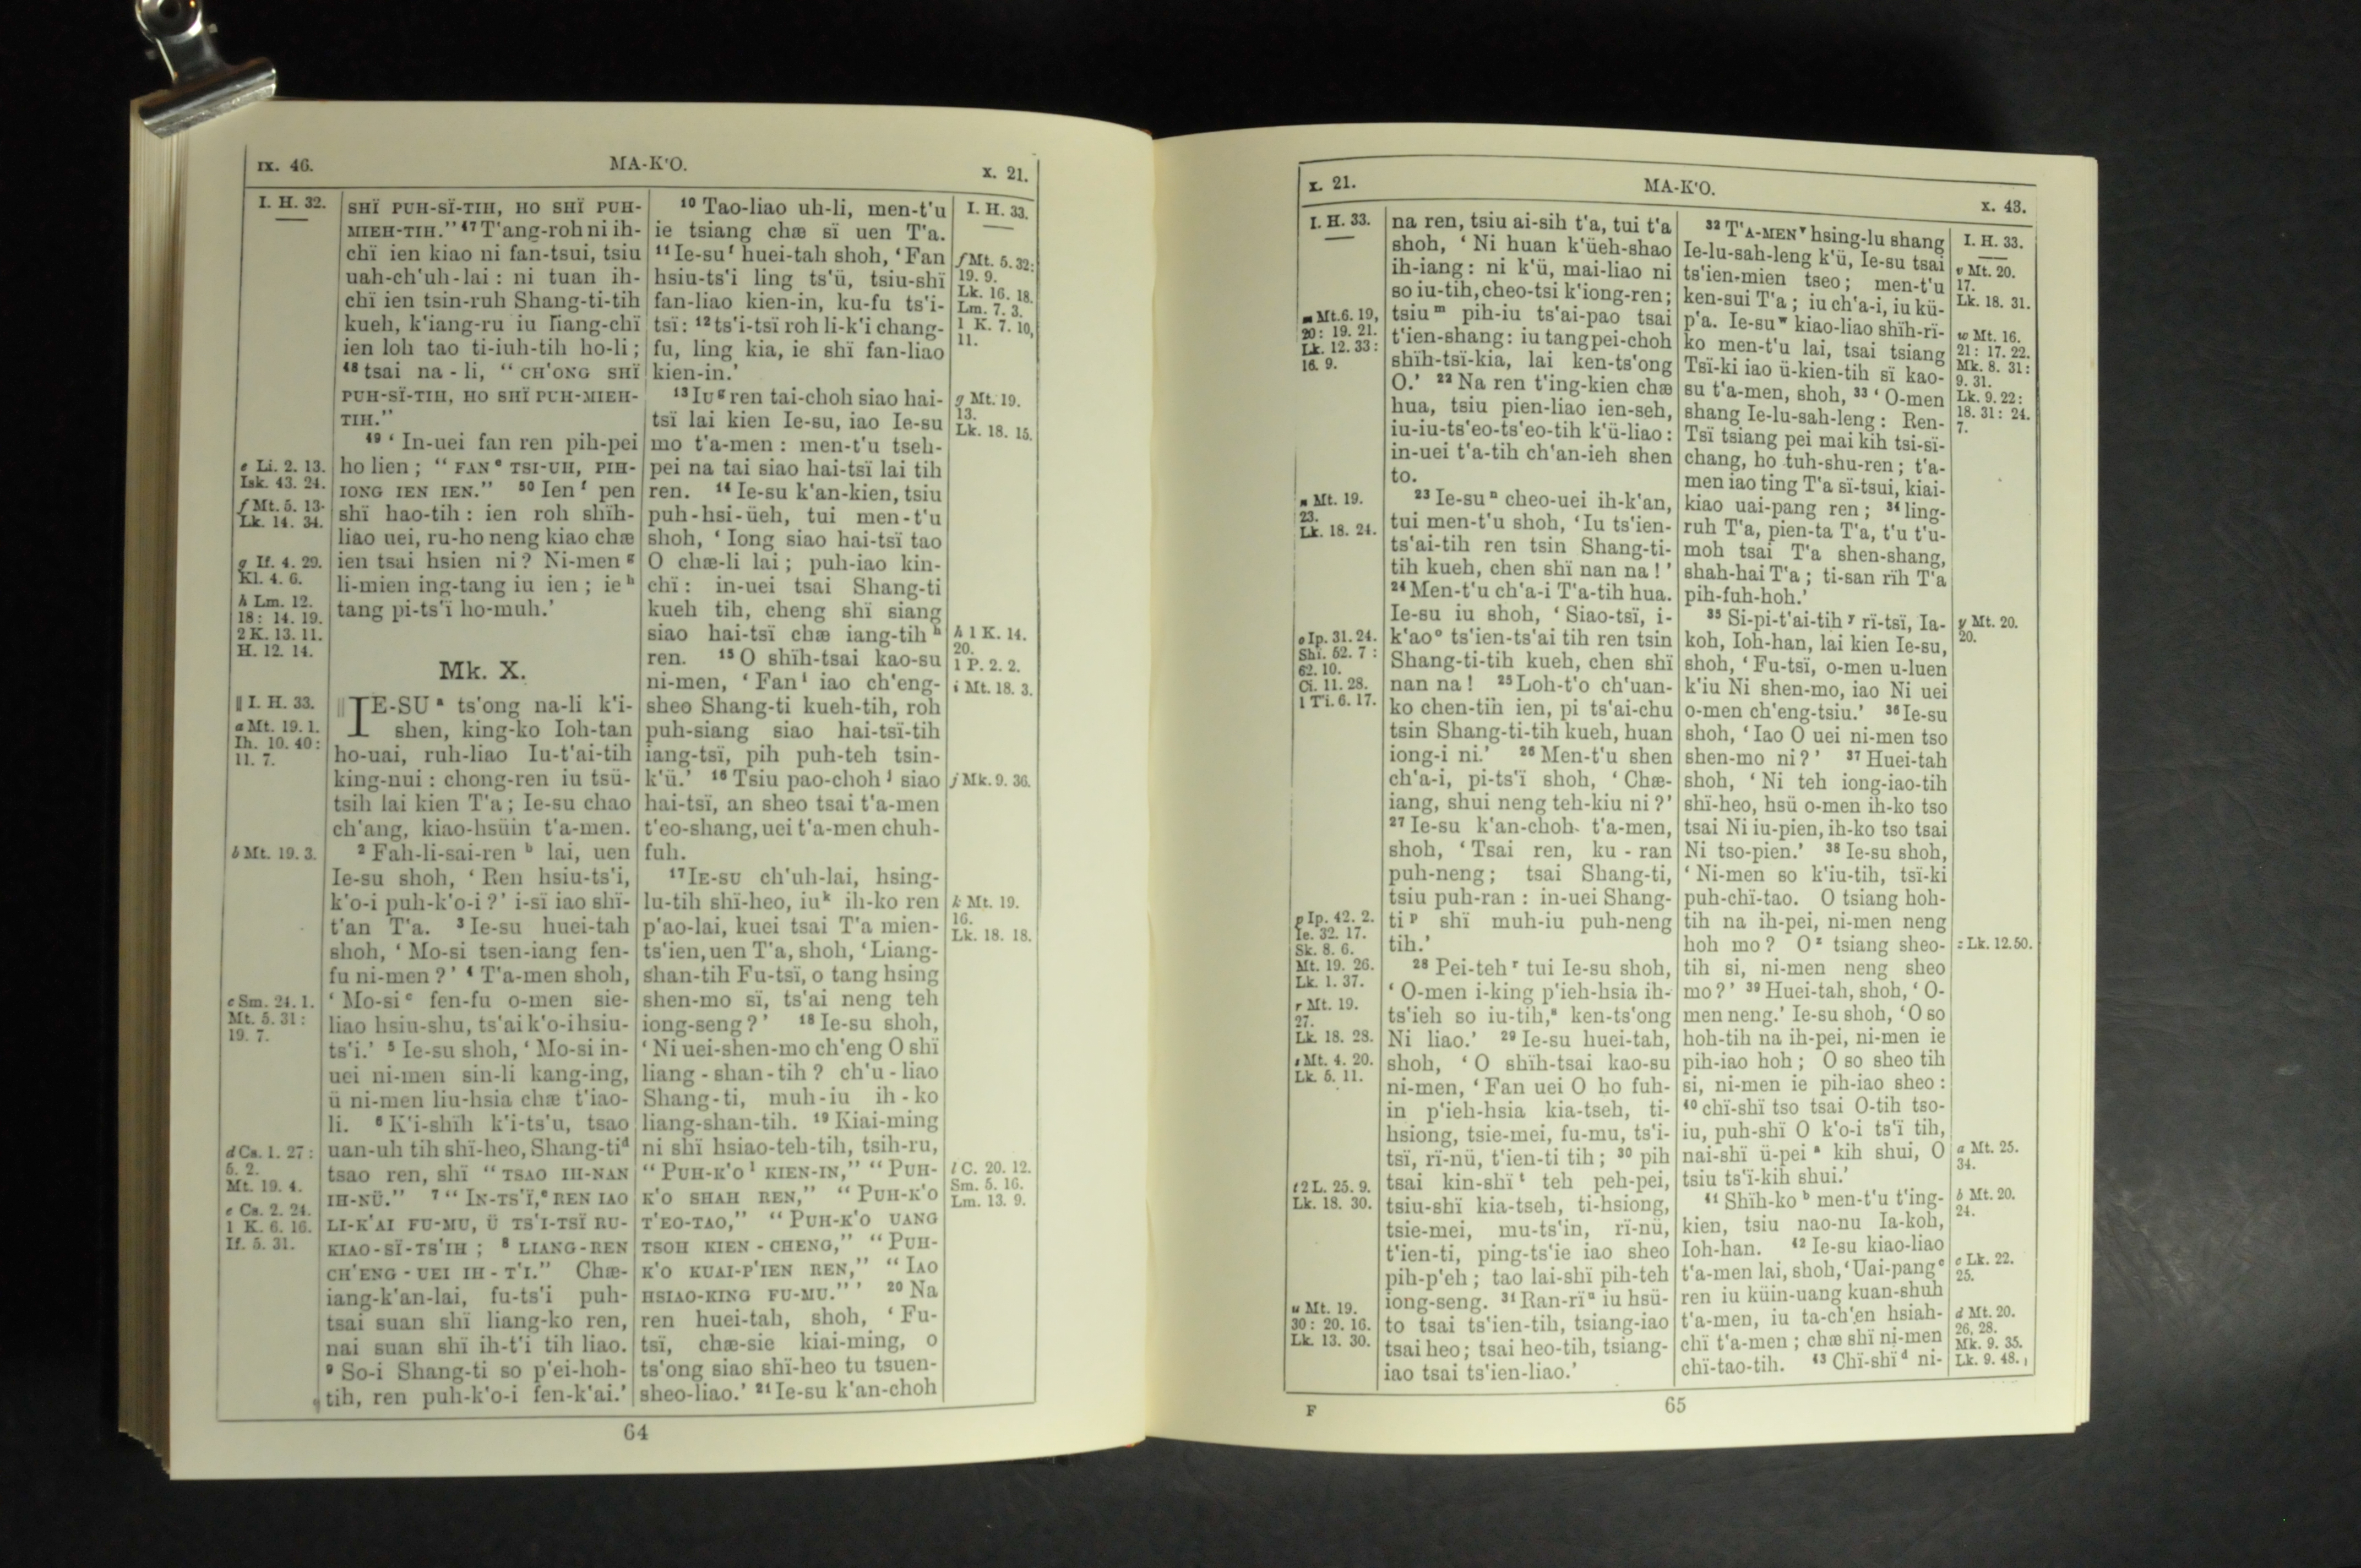 IX. 46.
MA-K'O.
X. 21.
I. H. 32.
e Li. 2. 13.
Isk. 43. 24.
f Mt. 5. 13.
Lk. 14. 34.
g If. 4. 29.
Kl. 4. 6.
h Lm. 12.
18: 14. 19.
2 K. 13. 11.
H. 12. 14.
|| I. H. 33.
a Mt. 19. 1.
Ih. 10. 40:
11. 7.
b Mt. 19. 3.
c Sm. 24. 1.
Mt. 5. 31:
19. 7.
d Cs. 1. 27:
5. 2.
Mt. 19. 4.
e Cs. 2. 24.
1 K. 6. 16.
If. 5. 31.
SHÏ PUH-SÏ-TIH, HO SHÏ PUH-
MIEH-TIH." 47 T'ang-roh ni ih-
chï ien kiao ni fan-tsui, tsiu
uah-ch'uh-lai : ni tuan ih-
chï ien tsin-ruh Shang-ti-tih
kueh, k'iang-ru iu liang-chï
ien loh tao ti-iuh-tih ho-li ;
48 tsai na-li, " CH'ONG SHÏ
PUH-SÏ-TIH, HO SHÏ PUH-MIEH-
TIH."
49 ' In-uei fan ren pih-pei
ho lien ; " FAN e TSI-UH, PIH-
IONG IEN IEN." 50 Ien f pen
shï hao-tih : ien roh shïh-
liao uei, ru-ho neng kiao chæ
ien tsai hsien ni ? Ni-men g
li-mien ing-tang iu ien ; ie h
tang pi-ts'ï ho-muh.'
Mk. X.
|| IE-SU a ts'ong na-li k'i-
shen, king-ko Ioh-tan
ho-uai, ruh-liao Iu-t'ai-tih
king-nui : chong-ren iu tsü-
tsih lai kien T'a ; Ie-su chao
ch'ang, kiao-hsüin t'a-men.
2 Fah-li-sai-ren b lai, uen
Ie-su shoh, ' Ren hsiu-ts'i,
k'o-i puh-k'o-i ?' i-sï iao shï-
t'an T'a. 3 Ie-su huei-tah
shoh, ' Mo-si tsen-iang fen-
fu ni-men ?' 4 T'a-men shoh,
' Mo-si c fen-fu o-men sie-
liao hsiu-shu, ts'ai k'o-i hsiu-
ts'i.' 5 Ie-su shoh, ' Mo-si in-
uei ni-men sin-li kang-ing,
ü ni-men liu-hsia chæ t'iao-
li. 6 K'i-shïh k'i-ts'u, tsao
uan-uh tih shï-heo, Shang-ti d
tsao ren, shï " TSAO IH-NAN
IH-NÜ." 7 " IN-TS'Ï, e REN IAO
LI-K'AI FU-MU, Ü TS'I-TSÏ RU-
KIAO-SÏ-TS'IH ; 8 LIANG-REN
CH'ENG-UEI IH-T'I." Chæ-
iang-k'an-lai, fu-ts'i puh-
tsai suan shï liang-ko ren,
nai suan shï ih-t'i tih liao.
9 So-i Shang-ti so p'ei-hoh-
tih, ren puh-k'o-i fen-k'ai.'
10 Tao-liao uh-li, men-t'u
ie tsiang chæ sï uen T'a.
11 Ie-su f huei-tah shoh, ' Fan
hsiu-ts'i ling ts'ü, tsiu-shï
fan-liao kien-in, ku-fu ts'i-
tsï : 12 ts'i-tsï roh li-k'i chang-
fu, ling kia, ie shï fan-liao
kien-in.'
13 Iu g ren tai-choh siao hai-
tsï lai kien Ie-su, iao Ie-su
mo t'a-men : men-t'u tseh-
pei na tai siao hai-tsï lai tih
ren. 14 Ie-su k'an-kien, tsiu
puh-hsi-üeh, tui men-t'u
shoh, ' Iong siao hai-tsï tao
O chæ-li lai ; puh-iao kin-
chï : in-uei tsai Shang-ti
kueh tih, cheng shï siang
siao hai-tsï chæ iang-tih h
ren. 15 O shïh-tsai kao-su
ni-men, ' Fan i iao ch'eng-
sheo Shang-ti kueh-tih, roh
puh-siang siao hai-tsï-tih
iang-tsï, pih puh-teh tsin-
k'ü.' 16 Tsiu pao-choh j siao
hai-tsï, an sheo tsai t'a-men
t'eo-shang, uei t'a-men chuh-
fuh.
17 IE-SU ch'uh-lai, hsing-
lu-tih shï-heo, iu k ih-ko ren
p'ao-lai, kuei tsai T'a mien-
ts'ien, uen T'a, shoh, ' Liang-
shan-tih Fu-tsï, o tang hsing
shen-mo sï, ts'ai neng teh
iong-seng ?' 18 Ie-su shoh,
' Ni uei-shen-mo ch'eng O shï
liang-shan-tih ? ch'u-liao
Shang-ti, muh-iu ih-ko
liang-shan-tih. 19 Kiai-ming
ni shï hsiao-teh-tih, tsih-ru,
" PUH-K'O l KIEN-IN," " PUH-
K'O SHAH REN," " PUH-K'O
T'EO-TAO," " PUH-K'O UANG
TSOH KIEN-CHENG," " PUH-
K'O KUAI-P'IEN REN," " IAO
HSIAO-KING FU-MU." ' 20 Na
ren huei-tah, shoh, ' Fu-
tsï, chæ-sie kiai-ming, o
ts'ong siao shï-heo tu tsuen-
sheo-liao.' 21 Ie-su k'an-choh
I. H. 33.
f Mt. 5. 32:
19. 9.
Lk. 16. 18.
Lm. 7. 3.
1 K. 7. 10,
11.
g Mt. 19.
13.
Lk. 18. 15.
h 1 K. 14.
20.
1 P. 2. 2.
i Mt. 18. 3.
j Mk. 9. 36.
k Mt. 19.
16.
Lk. 18. 18.
l C. 20. 12.
Sm. 5. 16.
Lm. 13. 9.
64
X. 21.
MA-K'O.
X. 43.
I. H. 33.
m Mt. 6. 19,
20: 19. 21.
Lk. 12. 33:
16. 9.
n Mt. 19.
23.
Lk. 18. 24.
o Ip. 31. 24.
Shï. 52. 7:
62. 10.
Ci. 11. 28.
1 Ti. 6. 17.
p Ip. 42. 2.
Ie. 32. 17.
Sk. 8. 6.
Mt. 19. 26.
Lk. 1. 37.
r Mt. 19.
27.
Lk. 18. 28.
s Mt. 4. 20.
Lk. 5. 11.
t 2 L. 25. 9.
Lk. 18. 30.
u Mt. 19.
30: 20. 16.
Lk. 13. 30.
na ren, tsiu ai-sih t'a, tui t'a
shoh, ' Ni huan k'üeh-shao
ih-iang : ni k'ü, mai-liao ni
so iu-tih, cheo-tsi k'iong-ren ;
tsiu m pih-iu ts'ai-pao tsai
t'ien-shang : iu tang pei-choh
shïh-tsï-kia, lai ken-ts'ong
O.' 22 Na ren t'ing-kien chæ
hua, tsiu pien-liao ien-seh,
iu-iu-ts'eo-ts'eo-tih k'ü-liao :
in-uei t'a-tih ch'an-ieh shen
to.
23 Ie-su n cheo-uei ih-k'an,
tui men-t'u shoh, ' Iu ts'ien-
ts'ai-tih ren tsin Shang-ti-
tih kueh, chen shï nan na !'
24 Men-t'u ch'a-i T'a-tih hua.
Ie-su iu shoh, ' Siao-tsï, i-
k'ao o ts'ien-ts'ai tih ren tsin
Shang-ti-tih kueh, chen shï
nan na ! 25 Loh-t'o ch'uan-
ko chen-tih ien, pi ts'ai-chu
tsin Shang-ti-tih kueh, huan
iong-i ni.' 26 Men-t'u shen
ch'a-i, pi-ts'ï shoh, ' Chæ-
iang, shui neng teh-kiu ni ?'
27 Ie-su k'an-choh t'a-men,
shoh, ' Tsai ren, ku-ran
puh-neng ; tsai Shang-ti,
tsiu puh-ran : in-uei Shang-
ti p shï muh-iu puh-neng
tih.'
28 Pei-teh r tui Ie-su shoh,
' O-men i-king p'ieh-hsia ih-
ts'ieh so iu-tih, s ken-ts'ong
Ni liao.' 29 Ie-su huei-tah,
shoh, ' O shïh-tsai kao-su
ni-men, ' Fan uei O ho fuh-
in p'ieh-hsia kia-tseh, ti-
hsiong, tsie-mei, fu-mu, ts'i-
tsï, rï-nü, t'ien-ti tih ; 30 pih
tsai kin-shï t teh peh-pei,
tsiu-shï kia-tseh, ti-hsiong,
tsie-mei, mu-ts'in, rï-nü,
t'ien-ti, ping-ts'ie iao sheo
pih-p'eh ; tao lai-shï pih-teh
iong-seng. 31 Ran-rï u iu hsü-
to tsai ts'ien-tih, tsiang-iao
tsai heo ; tsai heo-tih, tsiang-
iao tsai ts'ien-liao.'
32 T'A-MEN v hsing-lu shang
Ie-lu-sah-leng k'ü, Ie-su tsai
ts'ien-mien tseo ; men-t'u
ken-sui T'a ; iu ch'a-i, iu kü-
p'a. Ie-su w kiao-liao shïh-rï-
ko men-t'u lai, tsai tsiang
Tsï-ki iao ü-kien-tih sï kao-
su t'a-men, shoh, 33 ' O-men
shang Ie-lu-sah-leng : Ren-
Tsï tsiang pei mai kih tsi-sï-
chang, ho tuh-shu-ren ; t'a-
men iao ting T'a sï-tsui, kiai-
kiao uai-pang ren ; 34 ling-
ruh T'a, pien-ta T'a, t'u t'u-
moh tsai T'a shen-shang,
shah-hai T'a ; ti-san rïh T'a
pih-fuh-hoh.'
35 Si-pi-t'ai-tih y rï-tsï, Ia-
koh, Ioh-han, lai kien Ie-su,
shoh, ' Fu-tsï, o-men u-luen
k'iu Ni shen-mo, iao Ni uei
o-men ch'eng-tsiu.' 36 Ie-su
shoh, ' Iao O uei ni-men tso
shen-mo ni ?' 37 Huei-tah
shoh, ' Ni teh iong-iao-tih
shï-heo, hsü o-men ih-ko tso
tsai Ni iu-pien, ih-ko tso tsai
Ni tso-pien.' 38 Ie-su shoh,
' Ni-men so k'iu-tih, tsï-ki
puh-chï-tao. O tsiang hoh-
tih na ih-pei, ni-men neng
hoh mo ? O z tsiang sheo-
tih si, ni-men neng sheo
mo ?' 39 Huei-tah, shoh, ' O-
men neng.' Ie-su shoh, ' O so
hoh-tih na ih-pei, ni-men ie
pih-iao hoh ; O so sheo tih
si, ni-men ie pih-iao sheo :
40 chï-shï tso tsai O-tih tso-
iu, puh-shï O k'o-i ts'ï tih,
nai-shï ü-pei a kih shui, O
tsiu ts'ï-kih shui.'
41 Shïh-ko b men-t'u t'ing-
kien, tsiu nao-nu Ia-koh,
Ioh-han. 42 Ie-su kiao-liao
t'a-men lai, shoh, ' Uai-pang c
ren iu küin-uang kuan-shuh
t'a-men, iu ta-ch'en hsiah-
chï t'a-men ; chæ shï ni-men
chï-tao-tih. 43 Chï-shï d ni-
I. H. 33.
v Mt. 20.
17.
Lk. 18. 31.
w Mt. 16.
21: 17. 22.
Mk. 8. 31:
9. 31.
Lk. 9. 22:
18. 31: 24.
7.
y Mt. 20.
20.
z Lk. 12. 50.
a Mt. 25.
34.
b Mt. 20.
24.
c Lk. 22.
25.
d Mt. 20.
26, 28.
Mk. 9. 35.
Lk. 9. 48.
F
65